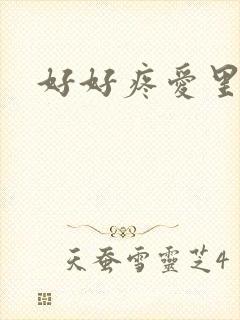 好好疼愛里
天蚕雪靈芝4